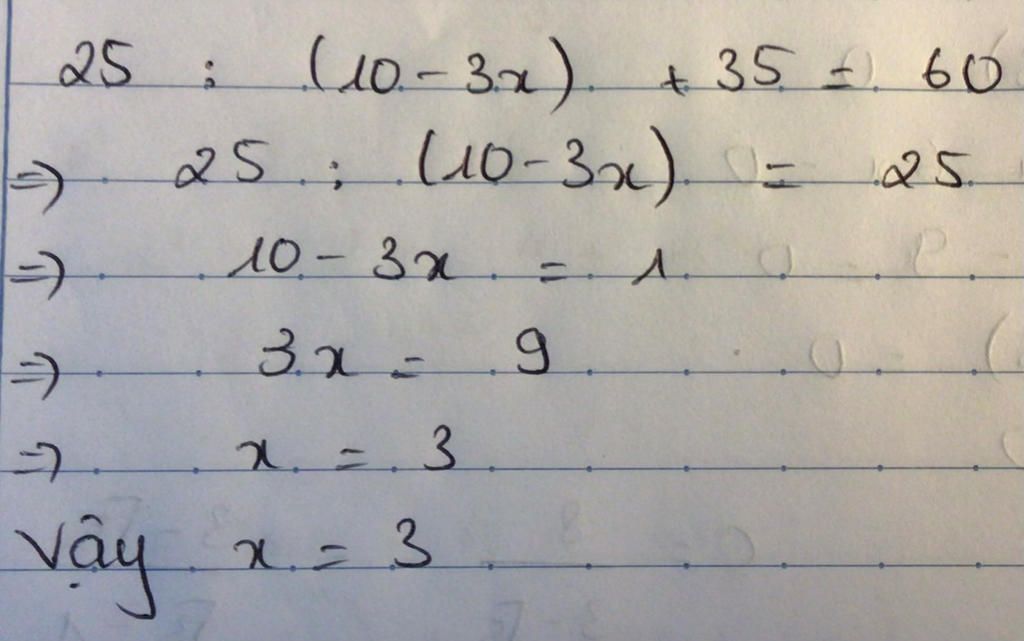 25 : (10 - 3x) + 35 = 60
=) 25 : (10 - 3x) = 25
=) 10 - 3x = 1
=) 3x = 9
=) x = 3
Vậy x = 3